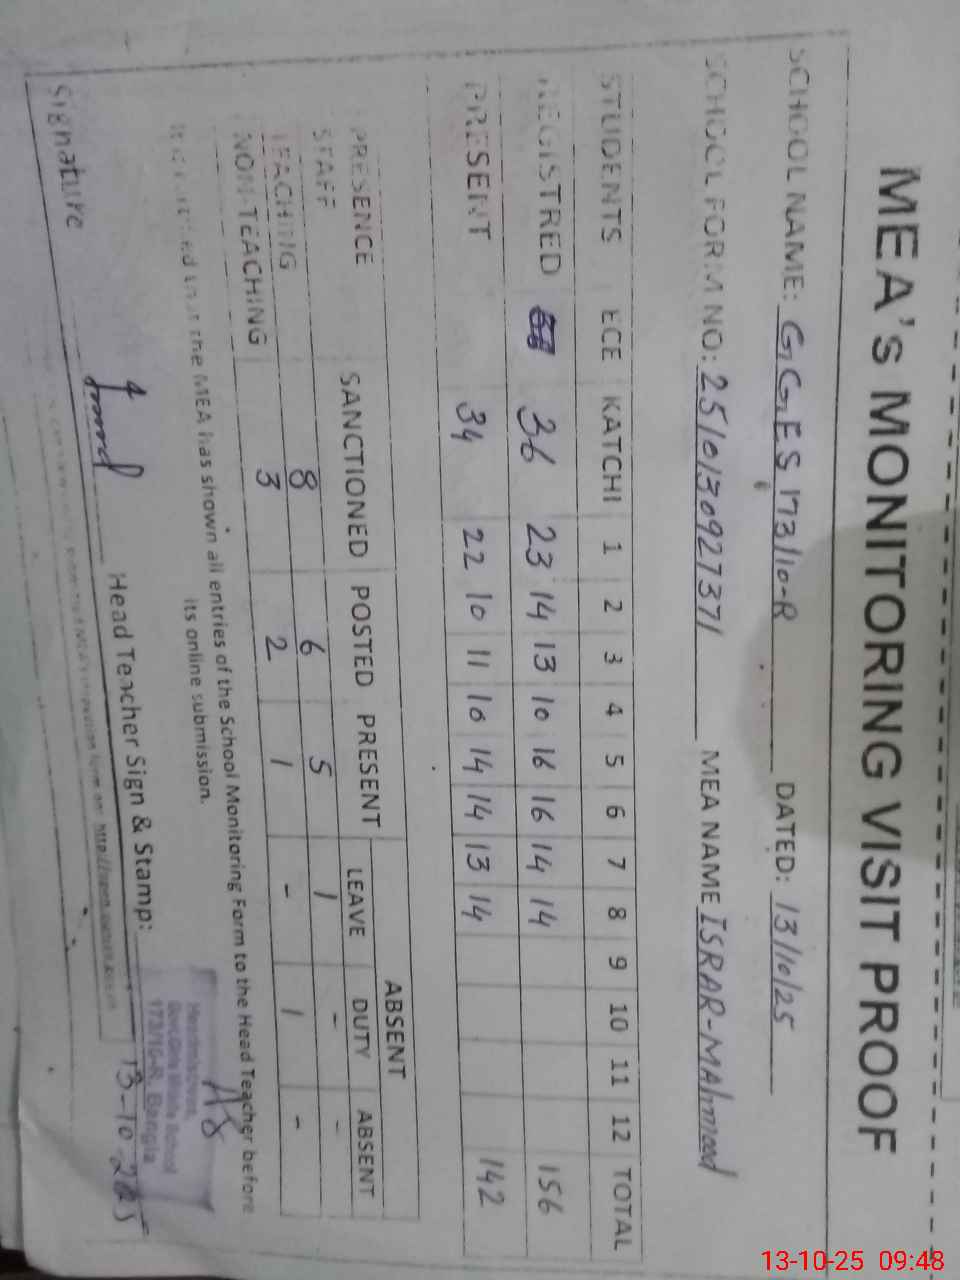 MEA's MONITORING VISIT PROOF
SCHOOL NAME: G.G.E.S 173/10-R DATED: 13/10/25
SCHOOL FORM NO: 2510130927371 MEA NAME ISRAR-MAhmood
STUDENTS ECE KATCHI 1 2 3 4 5 6 7 8 9 10 11 12 TOTAL
REGISTRED 36 23 14 13 10 16 16 14 14 156
PRESENT 34 22 10 11 10 14 14 13 14 142
ABSENT
PRESENCE SANCTIONED POSTED PRESENT LEAVE DUTY ABSENT
STAFF
TEACHING 8 6 5 1 - -
NON-TEACHING 3 2 1 - 1 -
It is certified that the MEA has shown all entries of the School Monitoring Form to the Head Teacher before
its online submission.
Signature Head Teacher Sign & Stamp:
Headmistress
Girls School
173/10-R, Bangla
13-10-2025
13-10-25 09:48